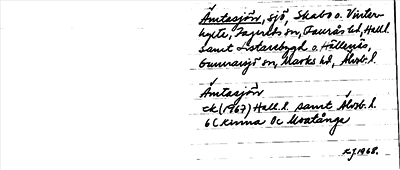 Ämtasjön, sjö, Skabo o. Vinter-
hylte, Fagereds sn, Faurås hd, Hall. l.
samt Listaresbygd o. Hällenäs,
Gunnarsjö sn, Marks hd, Älvsb. l.
Ämtasjön
ek (1967) Hall. l. samt Älvsb. l.
6 C Kinna 0c Moatånga
KJ 1968.